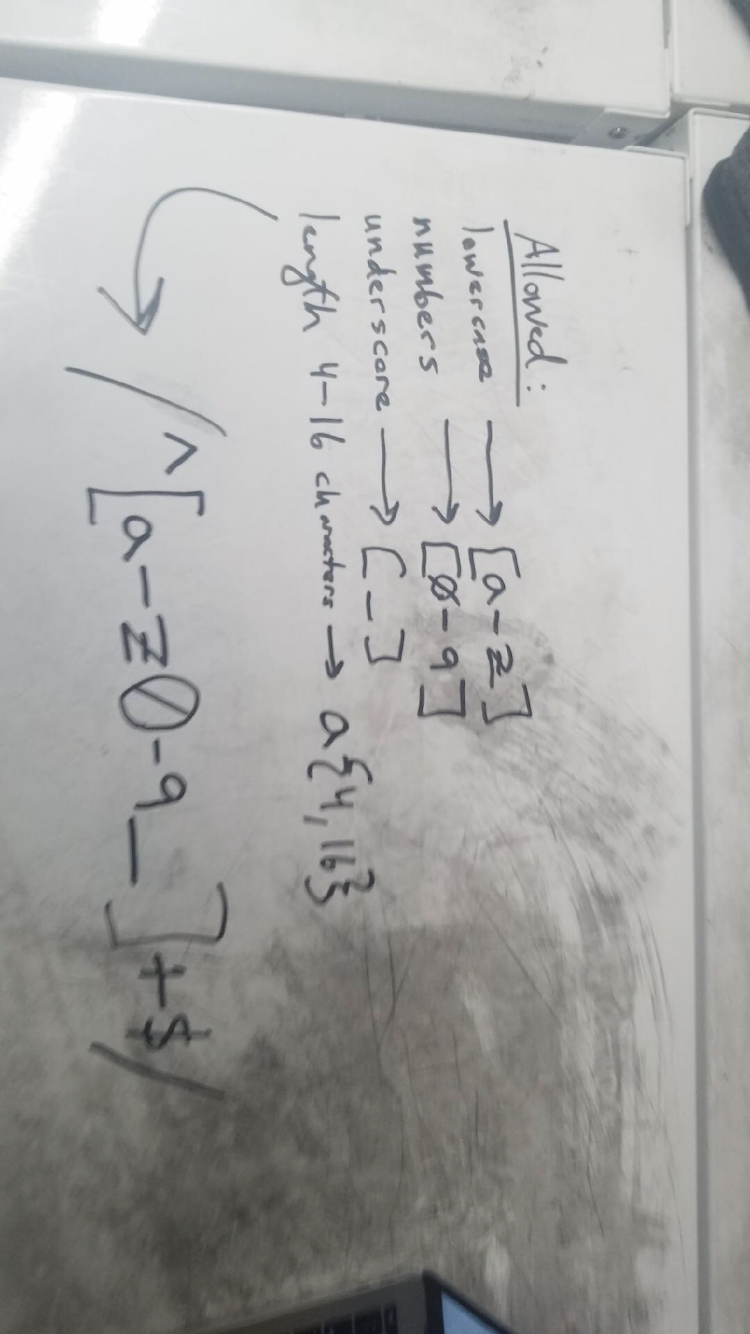 Allowed:
lowercase → [a-z]
numbers → [0-9]
underscore → [_]
length 4-16 characters → a{4,16}
/^[a-z0-9_]+$/